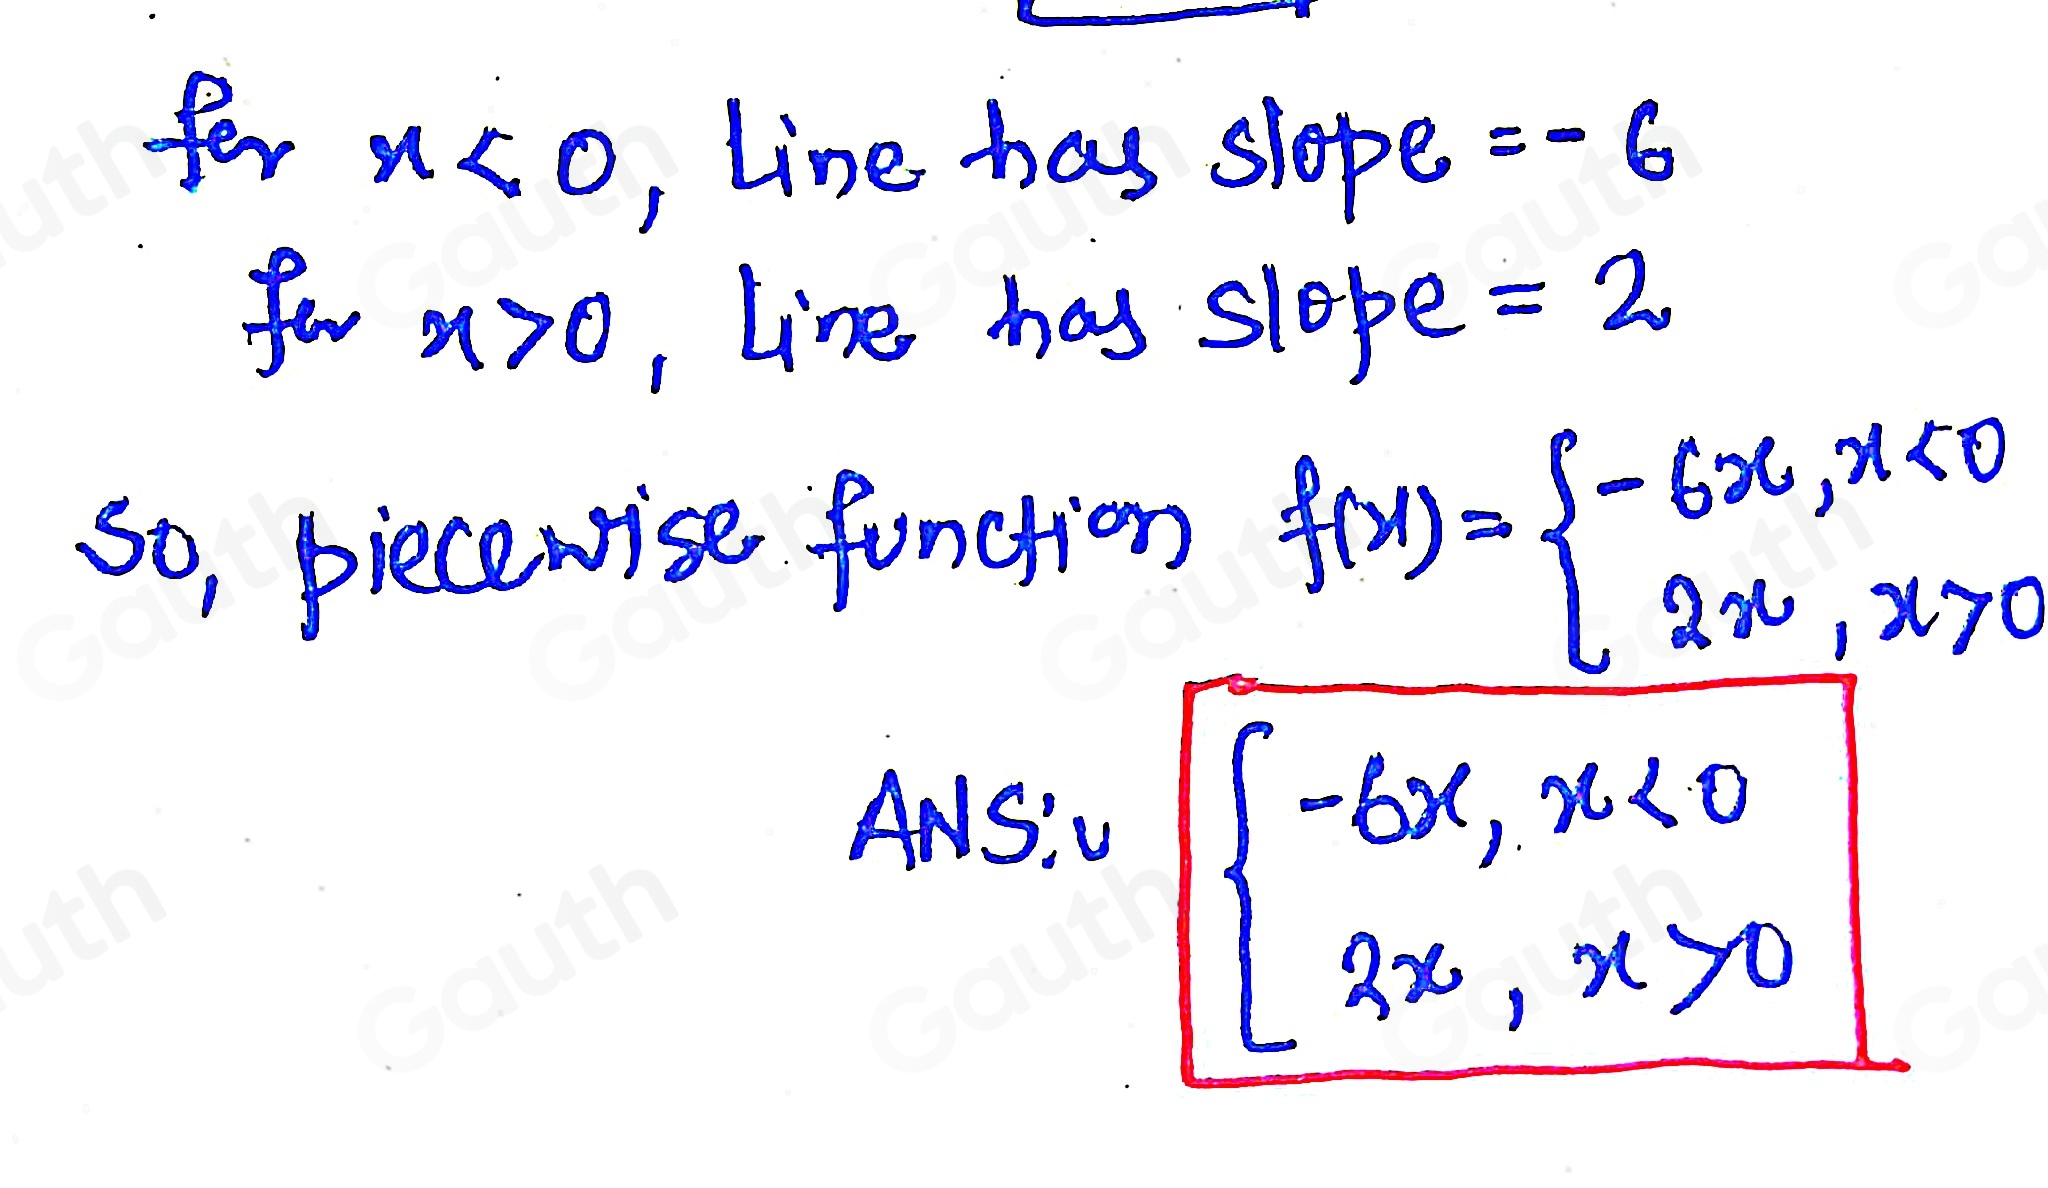 for x<0, Line has slope = - 6
for x>0, Line has slope = 2
So, piecewise function f(x) = { -6x, x<0
2x, x>0
ANS:
{ -6x, x<0
2x, x>0
Gauth